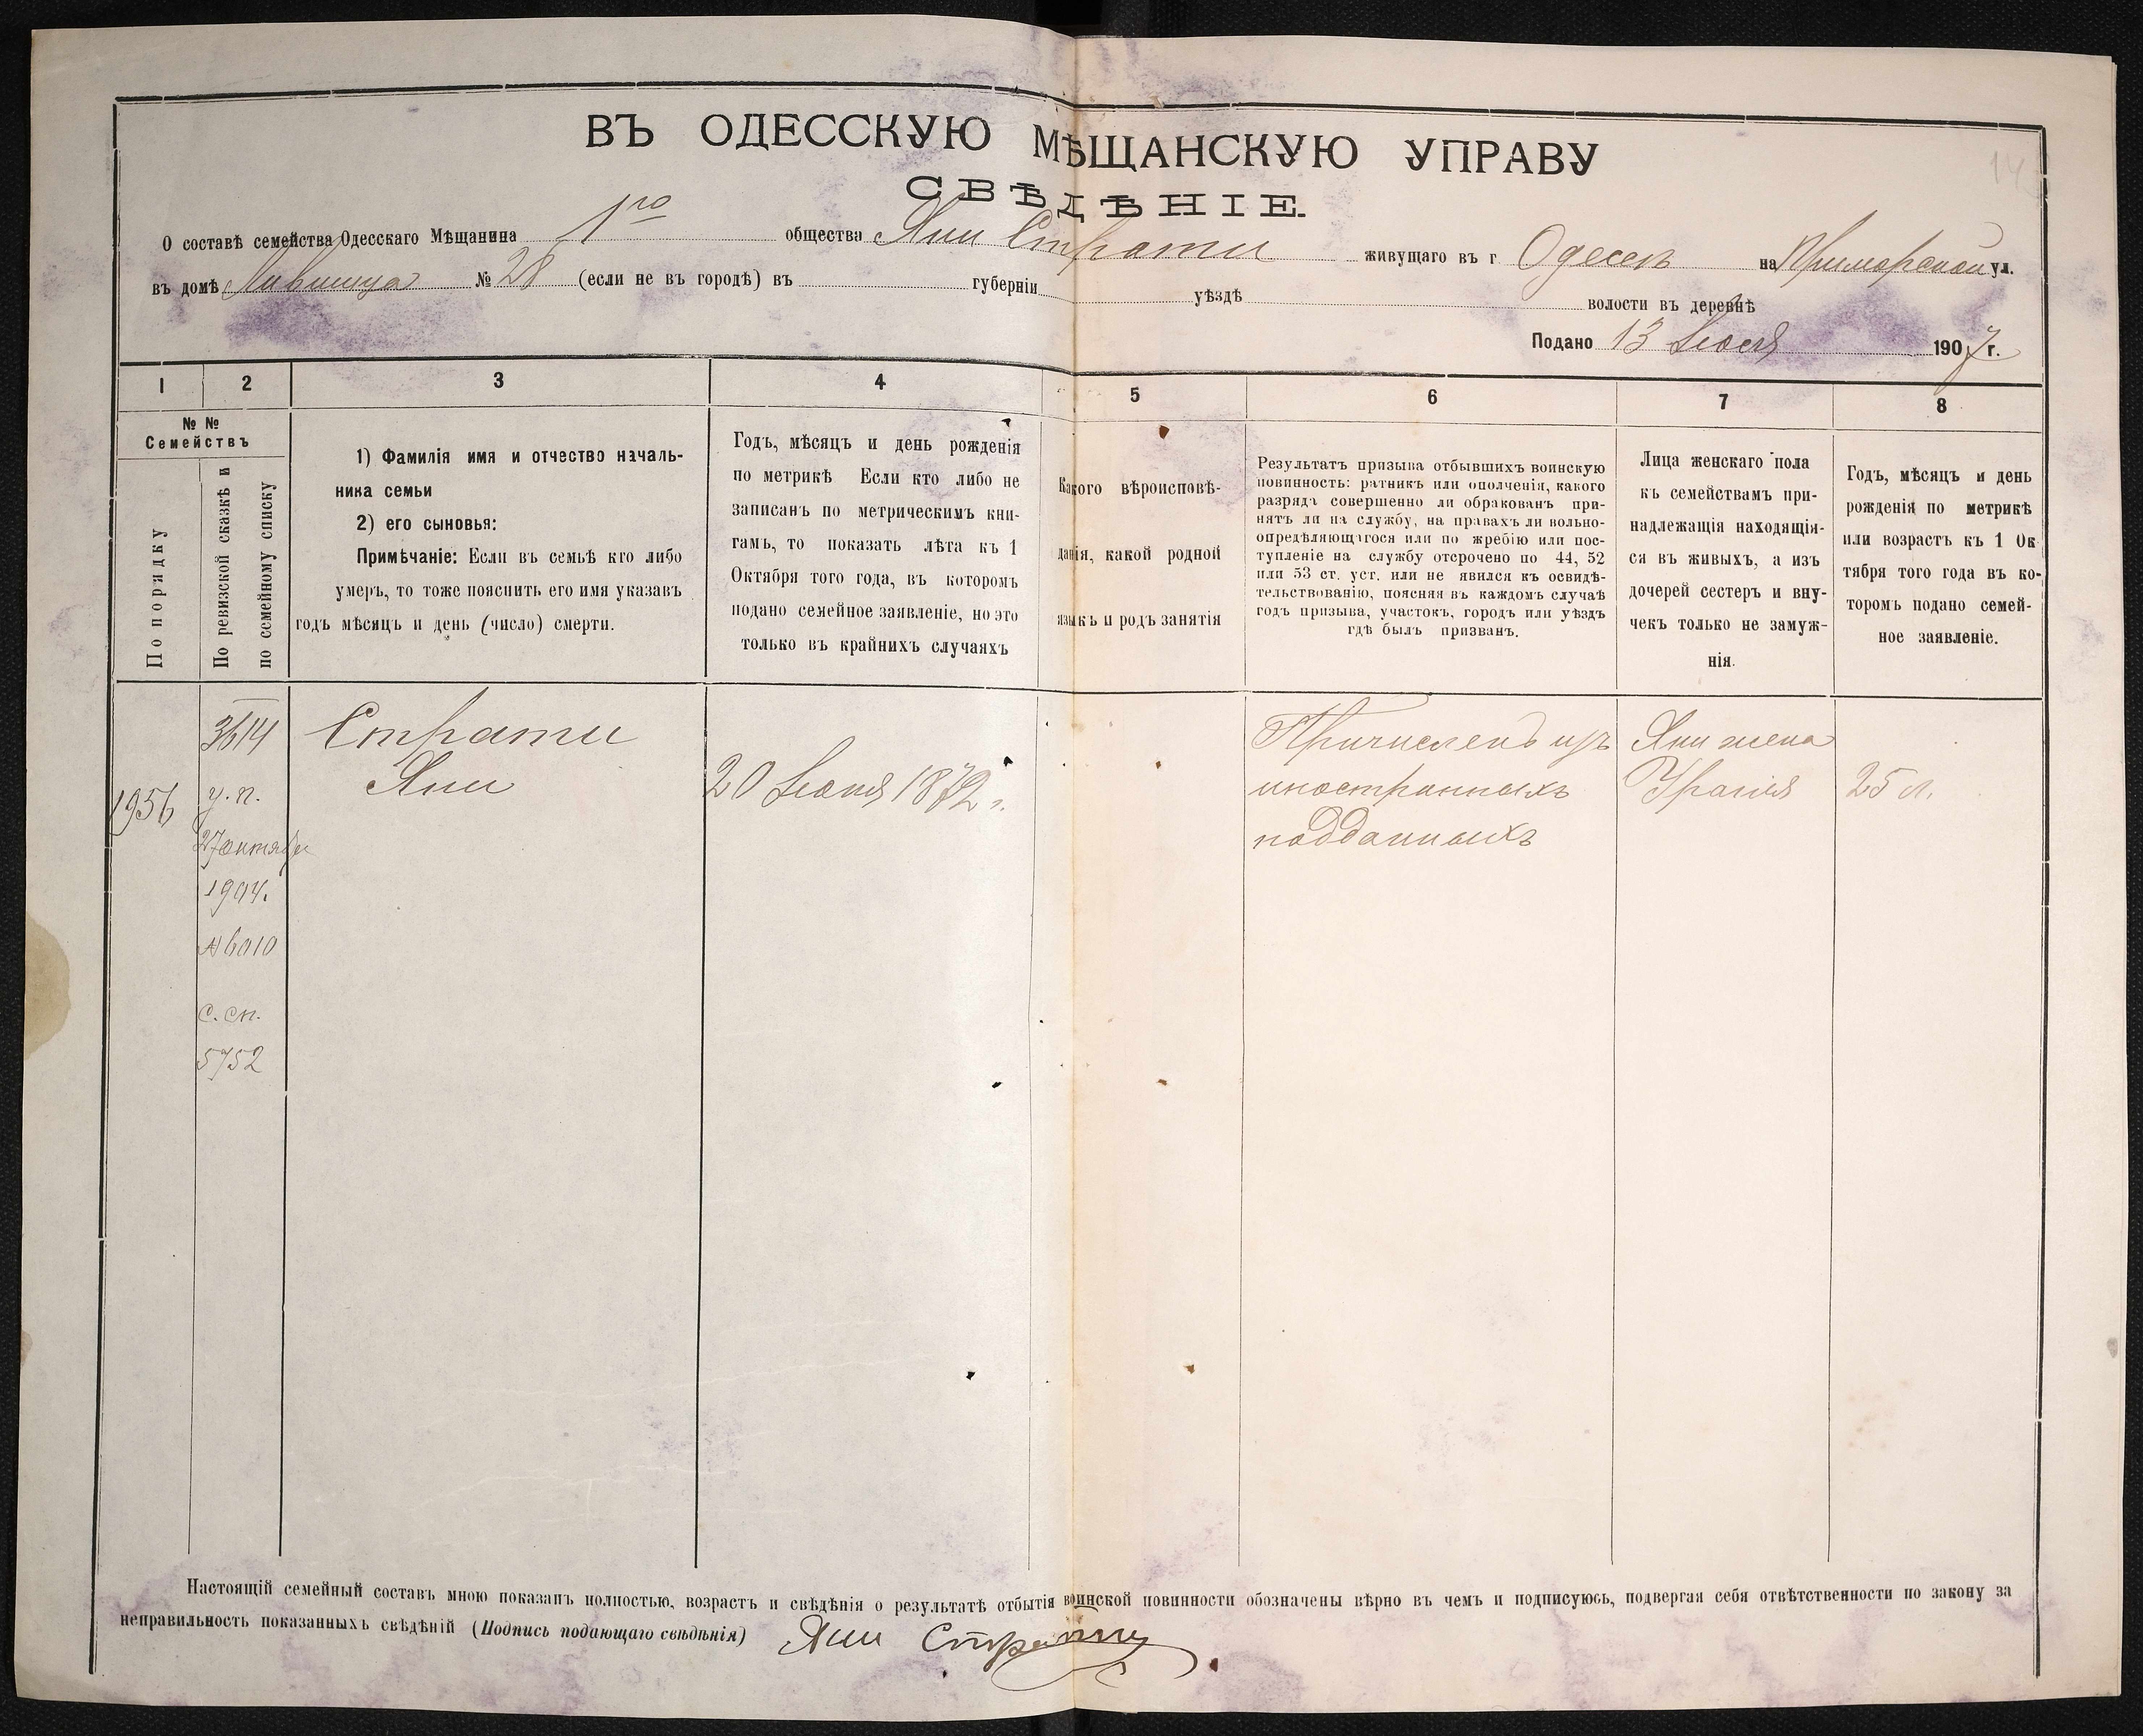 ВЪ ОДЕССКУЮ МѢЩАНСКУЮ УПРАВУ
СВѢДѢНІЕ.
О составѣ семейства Одесскаго Мѣщанина 1го общества Яни Страти живущаго въ г Одессѣ на Приморской ул.
въ домѣ № 28 (если не въ городѣ) въ губерніи уѣздѣ волости въ деревнѣ
Подано 13 1907 г.
1 2 3 4 5 6 7 8
№ №
Семействъ
По порядку
По ревизской сказкѣ и
по семейному списку
1) Фамилія имя и отчество началь-
ника семьи
2) его сыновья:
Примѣчаніе: Если въ семьѣ кто либо
умеръ, то тоже пояснить его имя указавъ
годъ мѣсяцъ и день (число) смерти.
Годъ, мѣсяцъ и день рожденія
по метрикѣ Если кто либо не
записанъ по метрическимъ кни-
гамъ, то показать лѣта къ 1
Октября того года, въ которомъ
подано семейное заявленіе, но это
только въ крайнихъ случаяхъ
Какого вѣроисповѣ-
данія, какой родной
языкъ и родъ занятія
Результатъ призыва отбывшихъ воинскую
повинность: ратникъ или ополченія, какого
разряда совершенно ли обракованъ при-
нятъ ли на службу, на правахъ ли вольно-
опредѣляющагося или по жребію или пос-
тупленіе на службу отсрочено по 44, 52
или 53 ст. уст. или не явился къ освидѣ-
тельствованію, поясняя въ каждомъ случаѣ
годъ призыва, участокъ, городъ или уѣздъ
гдѣ былъ призванъ.
Лица женскаго пола
къ семействамъ при-
надлежащія находящія-
ся въ живыхъ, а изъ
дочерей сестеръ и вну-
чекъ только не замуж-
нія.
Годъ, мѣсяцъ и день
рожденія по метрикѣ
или возрастъ къ 1 Ок-
тября того года въ ко-
торомъ подано семей-
ное заявленіе.
1956
3614
у. п.
27 октября
1904.
№ 6010
с. сп.
5752
Страти
Яни
20 1872 г.
Причисленъ изъ
иностранныхъ
подданныхъ
Яни жена
Уранія
25 л.
Настоящій семейный составъ мною показанъ полностью, возрастъ и свѣдѣнія о результатѣ отбытія воинской повинности обозначены вѣрно въ чемъ и подписуюсь, подвергая себя отвѣтственности по закону за
неправильность показанныхъ свѣдѣній (Подпись подающаго свѣдѣнія) Яни Страти